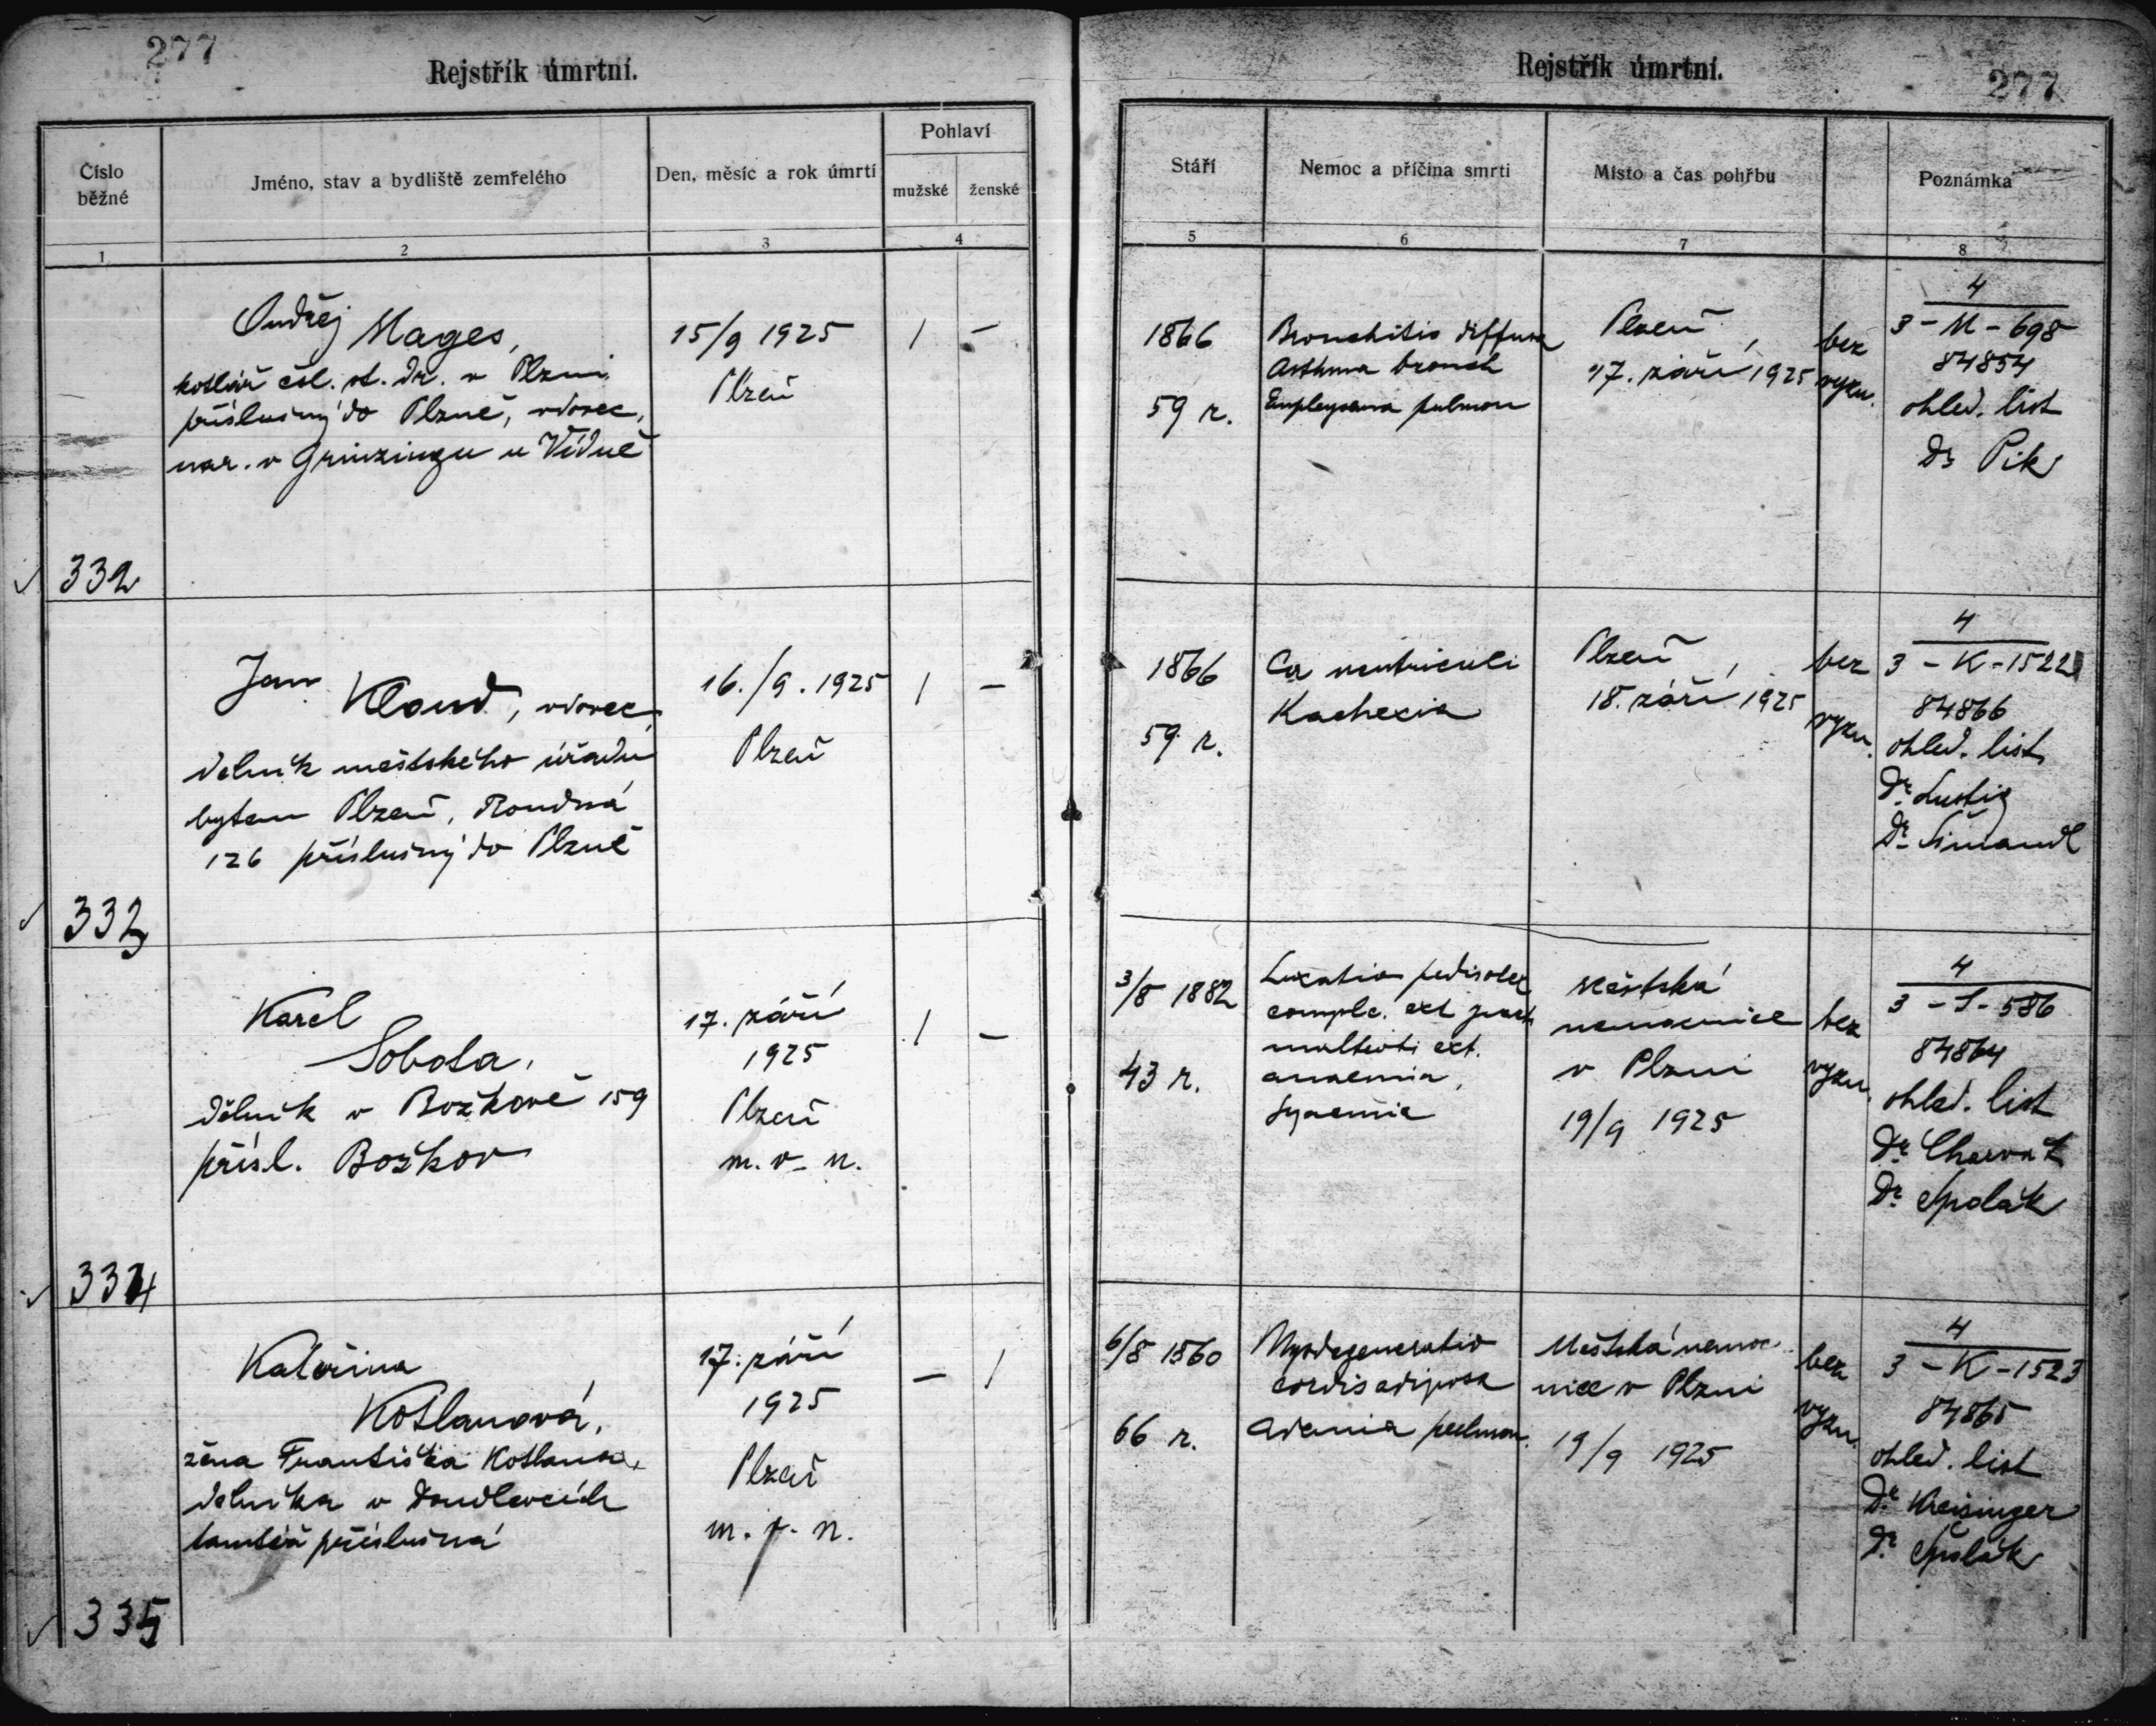 277
Rejstřík úmrtní.
Číslo běžné
Jméno, stav a bydliště zemřelého
Den, měsíc a rok úmrtí
Pohlaví
mužské
ženské
1
2
3
4
Ondřej
Mages,
kotlář čsl. st. dr. v Plzni
příslušný do Plzně, vdovec,
nar. v Grinzingu u Vídně
15/9 1925
Plzeň
/
—
332
Jan
Kloud, vdovec
dělník městského úřadu
bytem Plzeň, Roudná
126 příslušný do Plzně
16./9. 1925
Plzeň
/
—
333
Karel
Sobota,
dělník v Božkově 159
přísl. Božkov
17. září
1925
Plzeň
m. v. n.
/
—
334
Kateřina
Kotlanová,
žena Františka Kotlana,
dělníka v Doudlevcích
tamtéž příslušná
17. září
1925
Plzeň
m. v. n.
—
/
335
Rejstřík úmrtní.
277
Stáří
Nemoc a příčina smrti
Místo a čas pohřbu
Poznámka
5
6
7
8
1866
59 r.
Bronchitis diffusa
Asthma bronch
Emphysema pulmon
Plzeň,
17. září 1925
bez
vyzn.
4
3 - M - 698
84854
ohled. list
Dr Pik
1866
59 r.
Ca ventriculi
Kachexia
Plzeň,
18. září 1925
bez
vyzn.
4
3 - K - 1522
84866
ohled. list
Dr. Lustig
Dr. Šimandl
3/8 1882
43 r.
Luxatio
comple. ext
ext.
anaemia,
Městská
nemocnice
v Plzni
19/9 1925
bez
vyzn.
4
3 - S - 586
84864
ohled. list
Dr. Charvát
Dr. Špolák
6/8 1860
66 r.
Myodegeneratio
cordis adiposa
pulmon.
Městská nemoc
nice v Plzni
19/9 1925
bez
vyzn.
4
3 - K - 1523
84865
ohled. list
Dr. Kreisinger
Dr. Špolák